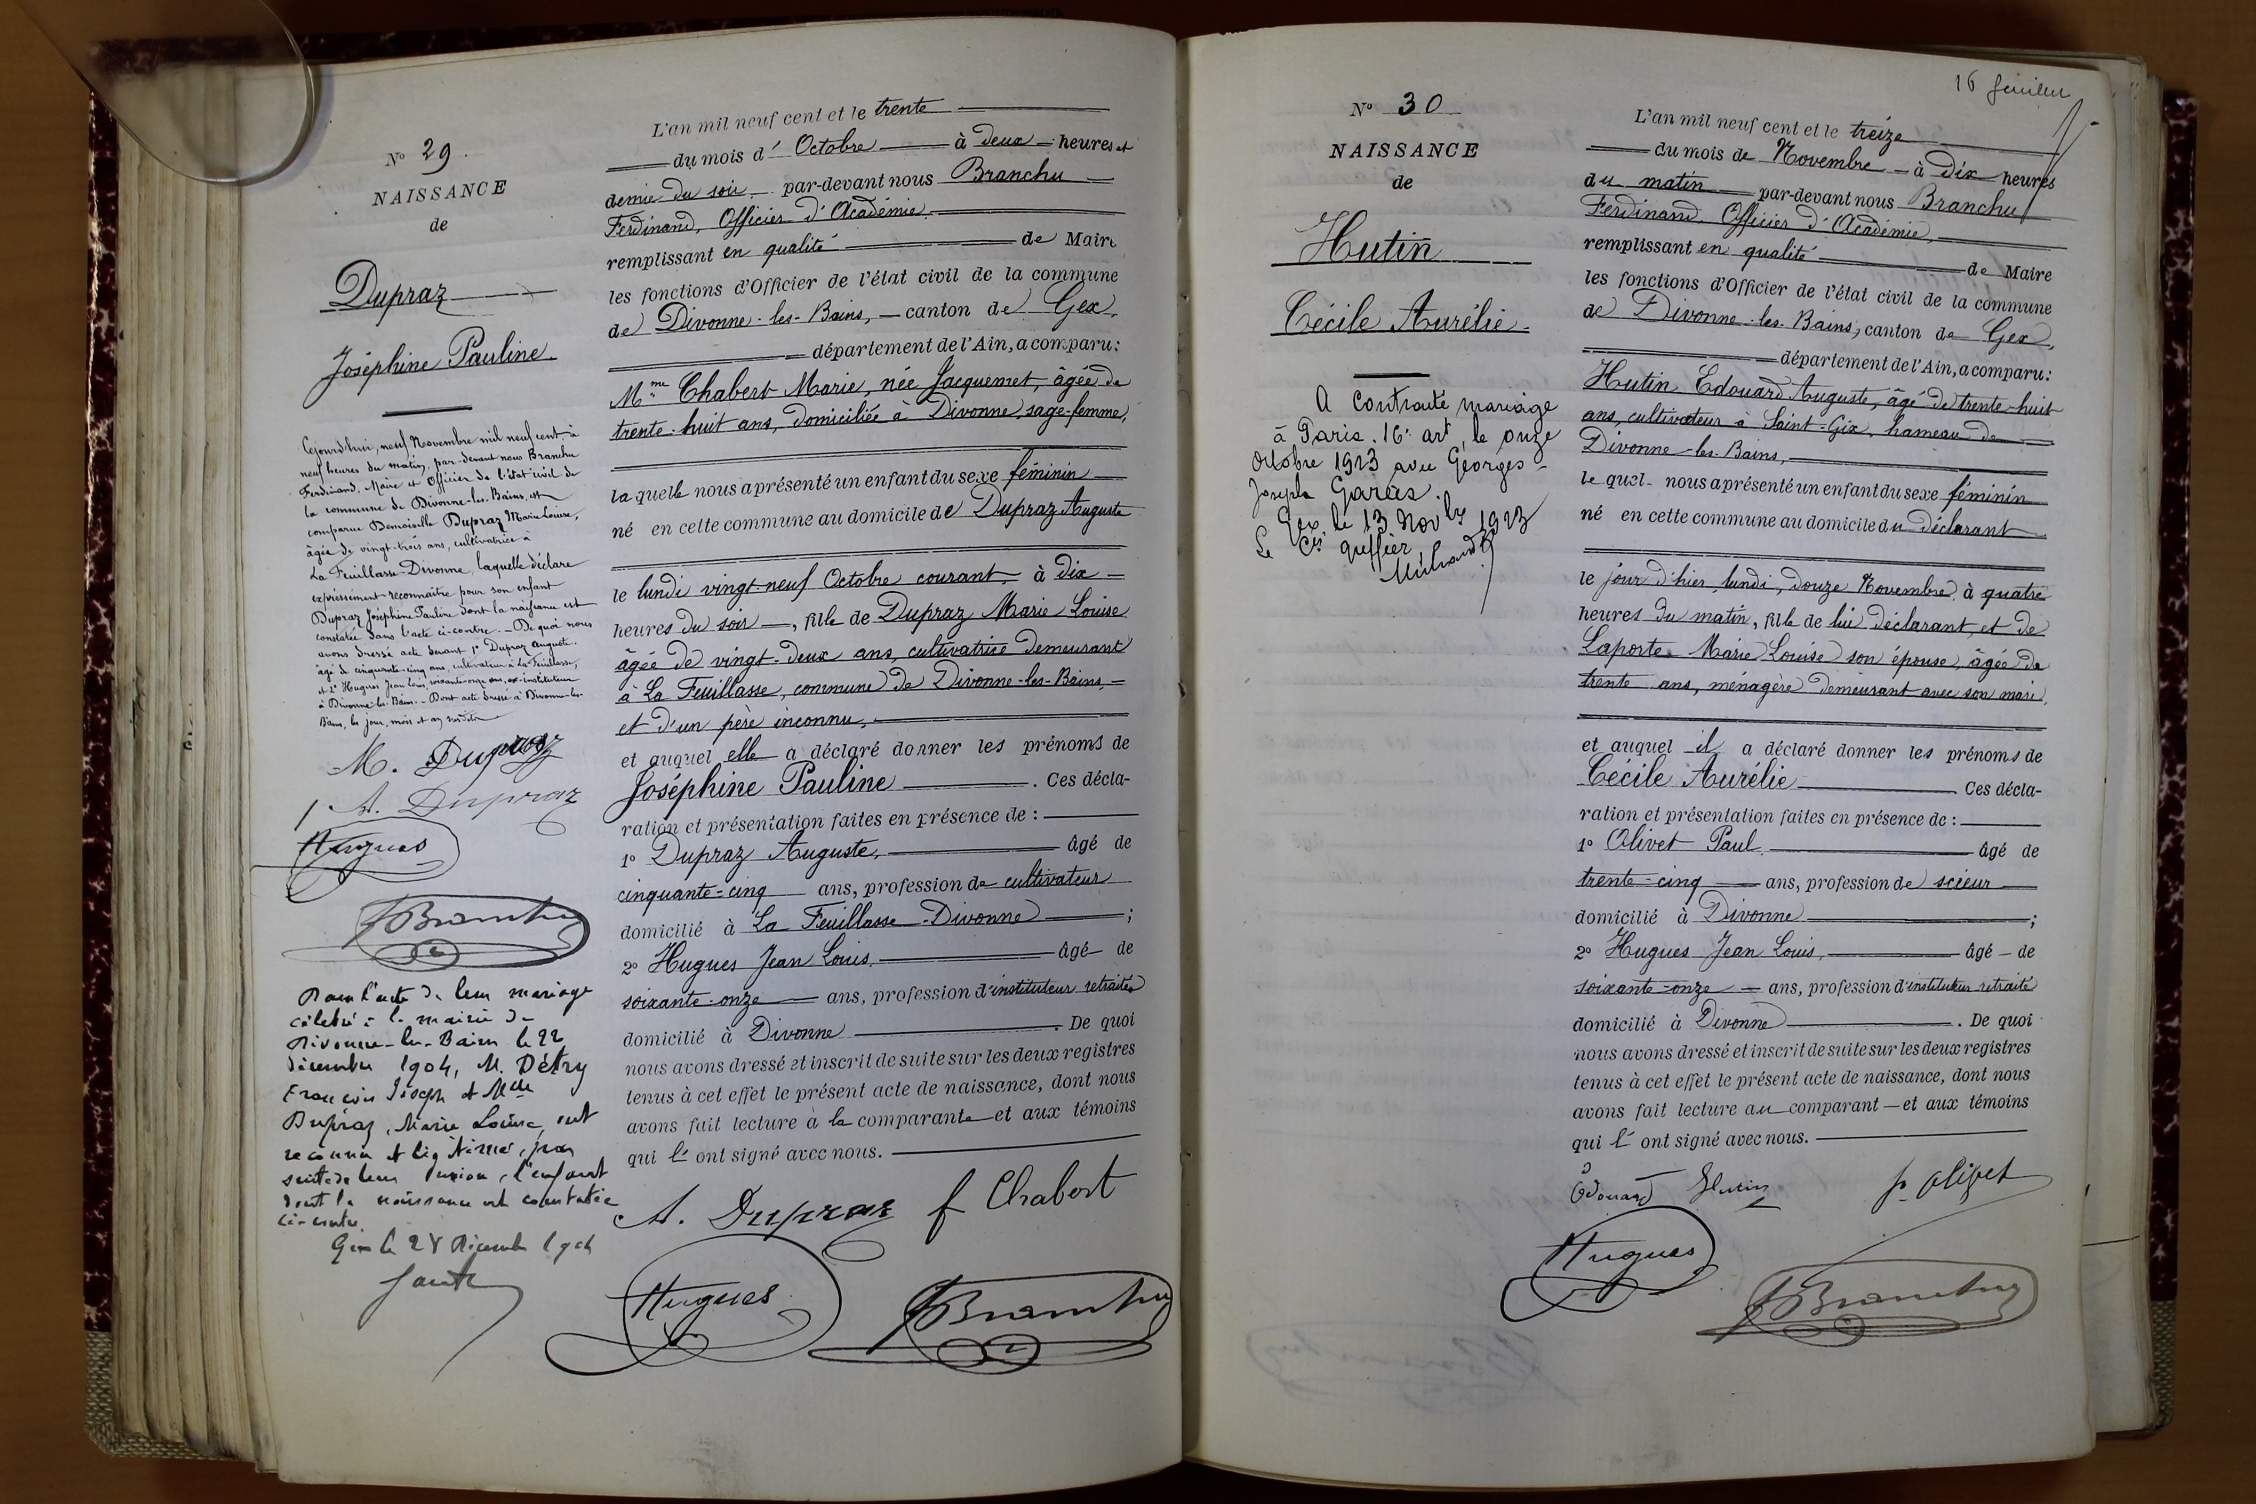 N° 29.
NAISSANCE
de
Dupraz
Joséphine Pauline.
Cejourd'hui, neuf Novembre mil neuf cent, à
neuf heures du matin, par-devant nous Branchu
Ferdinand, Maire et Officier de l'état civil de
la commune de Divonne-les-Bains, est
comparue Demoiselle Dupraz Marie Louise,
âgée de vingt-trois ans, cultivatrice à
La Feuillasse-Divonne, laquelle déclare
expressément reconnaître pour son enfant
Dupraz Joséphine Pauline dont la naissance est
constatée dans l'acte ci-contre. - De quoi nous
avons dressé acte devant 1° Dupraz Auguste,
âgé de cinquante-cinq ans, cultivateur à La Feuillasse,
et 2° Hugues Jean Louis, soixante-onze ans, ex-instituteur
à Divonne-les-Bains. - Dont acte dressé à Divonne-les-
Bains, les jour, mois et an susdits
M. Dupraz
A. Dupraz
Hugues
FBranchu
Dans l'acte de leur mariage
célébré à la mairie de
Divonne-les-Bains le 22
décembre 1904, M. Détry
François Joseph et Mlle
Dupraz, Marie Louise, ont
reconnu et légitimé, par
suite de leur union, l'enfant
dont la naissance est constatée
ci-contre.
Gex le 28 Décembre 1904
L'an mil neuf cent et le trente
du mois d' Octobre à deux heures et
demie du soir par-devant nous Branchu
Ferdinand, Officier d'Académie,
remplissant en qualité de Maire
les fonctions d'Officier de l'état civil de la commune
de Divonne-les-Bains, canton de Gex,
département de l'Ain, a comparu:
Mme Chabert Marie, née Jacquemet, âgée de
trente-huit ans, domiciliée à Divonne, sage-femme,
laquelle nous a présenté un enfant du sexe féminin
né en cette commune au domicile de Dupraz Auguste
le lundi vingt-neuf Octobre courant, à dix
heures du soir, fille de Dupraz Marie Louise
âgée de vingt-deux ans, cultivatrice demeurant
à La Feuillasse, commune de Divonne-les-Bains,
et d'un père inconnu,
et auquel elle a déclaré donner les prénoms de
Joséphine Pauline. Ces décla-
ration et présentation faites en présence de :
1° Dupraz Auguste, âgé de
cinquante-cinq ans, profession de cultivateur
domicilié à La Feuillasse-Divonne ;
2° Hugues Jean Louis, âgé de
soixante-onze ans, profession d'instituteur retraité
domicilié à Divonne. De quoi
nous avons dressé et inscrit de suite sur les deux registres
tenus à cet effet le présent acte de naissance, dont nous
avons fait lecture à la comparante et aux témoins
qui l' ont signé avec nous.
A. Dupraz f Chabert
Hugues FBranchu
N° 30
NAISSANCE
de
Hutin
Cécile Aurélie.
A contracté mariage
à Paris. 16e art, le onze
Octobre 1923 avec Georges
Joseph Garas.
Gex, le 13 Novbre 1923
Le Cis greffier,
L'an mil neuf cent et le treize
du mois de Novembre à dix heures
du matin par-devant nous Branchu
Ferdinand, Officier d'Académie,
remplissant en qualité de Maire
les fonctions d'Officier de l'état civil de la commune
de Divonne-les-Bains, canton de Gex,
département de l'Ain, a comparu:
Hutin Edouard Auguste, âgé de trente-huit
ans, cultivateur à Saint-Gix, hameau de
Divonne-les-Bains,
lequel nous a présenté un enfant du sexe féminin
né en cette commune au domicile du déclarant
le jour d'hier, lundi, douze Novembre, à quatre
heures du matin, fille de lui déclarant, et de
Laporte Marie Louise son épouse, âgée de
trente ans, ménagère demeurant avec son mari,
et auquel il a déclaré donner les prénoms de
Cécile Aurélie. Ces décla-
ration et présentation faites en présence de :
1° Olivet Paul, âgé de
trente-cinq ans, profession de scieur
domicilié à Divonne ;
2° Hugues Jean Louis, âgé de
soixante-onze ans, profession d'instituteur retraité
domicilié à Divonne. De quoi
nous avons dressé et inscrit de suite sur les deux registres
tenus à cet effet le présent acte de naissance, dont nous
avons fait lecture au comparant et aux témoins
qui l' ont signé avec nous.
Edouard Hutin P. Olivet
Hugues FBranchu